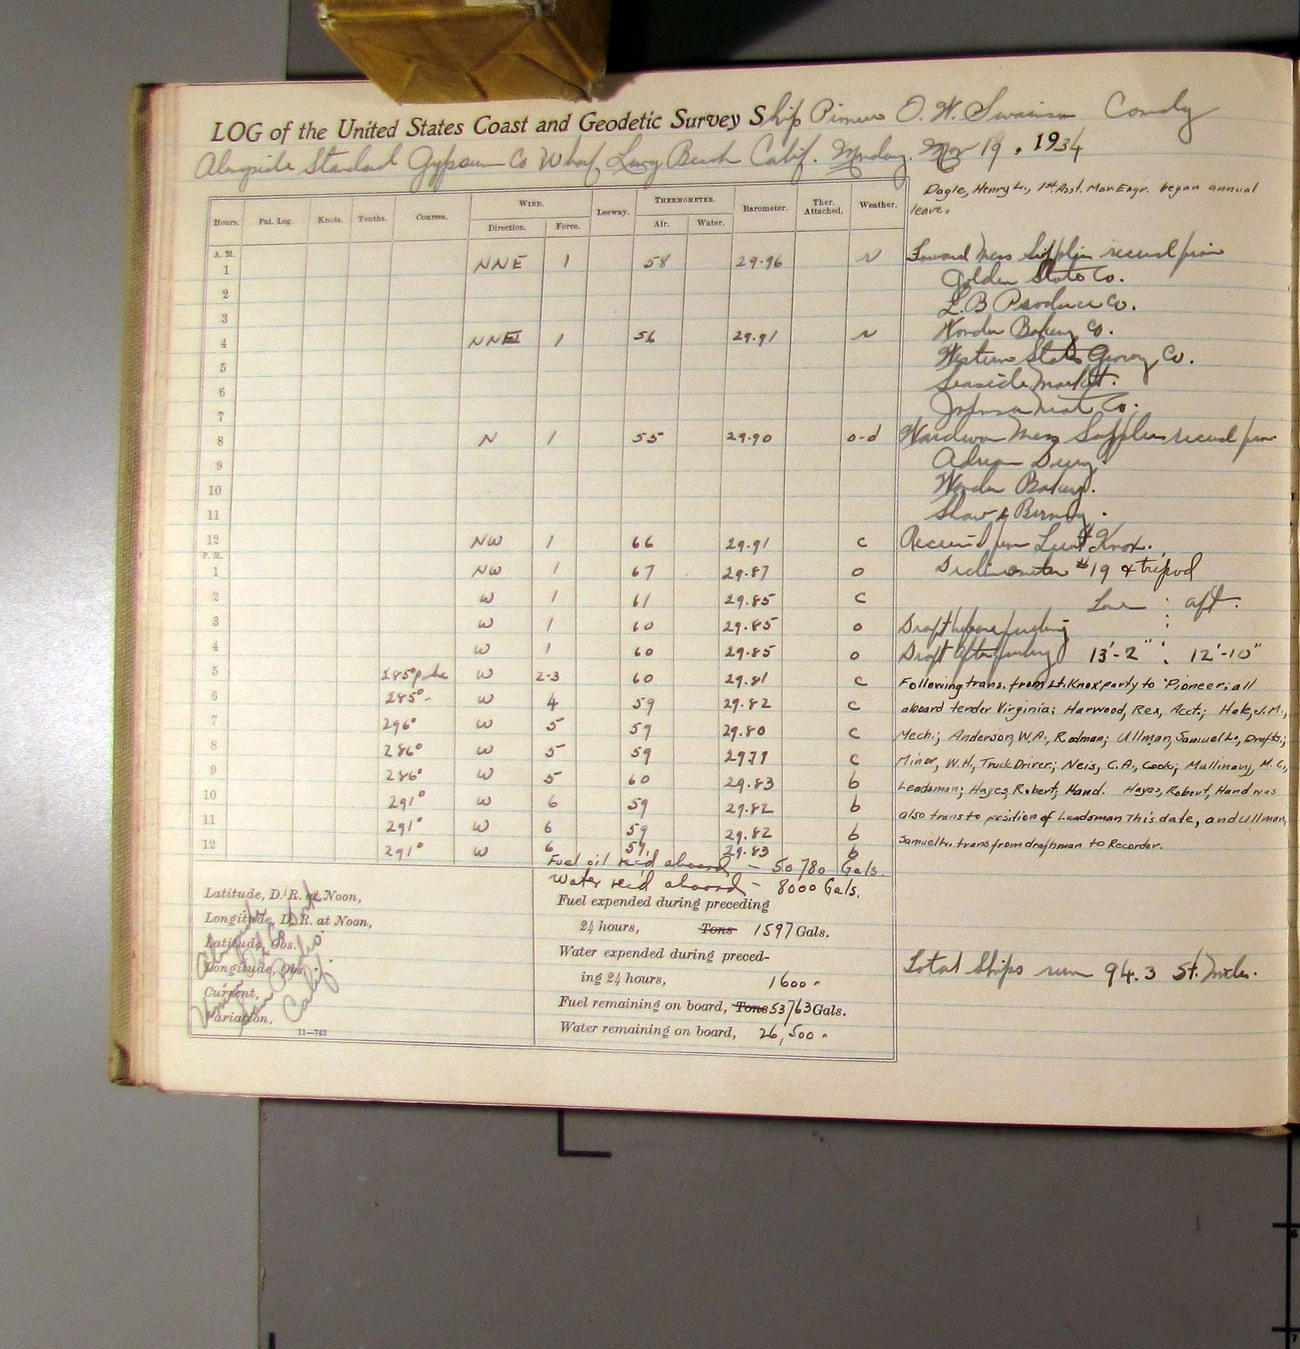 LOG of the United States Coast and Geodetic Survey Ship Pioneer O. W. Swainson Comdg
Alongside Standard Gypsum Co Wharf, Long Beach Calif. Monday. Nov 19, 1934
Dagle, Henry L., 1st Asst. Mar. Engr. began annual
leave.
Hours. Pat. Log. Knots. Tenths. Courses. WIND. Direction. Force. Leeway. THERMOMETER. Air. Water. Barometer. Ther. Attached. Weather.
A. M.
1 NNE 1 58 29.96 r
2
3
4 NNE 1 56 29.91 r
5
6
7
8 N 1 55 29.90 o-d
9
10
11
12 NW 1 66 29.91 c
P. M.
1 NW 1 67 29.87 o
2 W 1 61 29.85 c
3 W 1 60 29.85 o
4 W 1 60 29.85 o
5 285° p.s.c. W 2-3 60 29.81 c
6 285° W 4 59 29.82 c
7 296° W 5 57 29.80 c
8 286° W 5 59 29.79 c
9 286° W 5 60 29.83 b
10 291° W 6 59 29.82 b
11 291° W 6 59 29.82 b
12 291° W 6 57 29.83 b
Forward Mess Supplies received from
Golden State Co.
L.B Produce Co.
Wonder Bakery Co.
Western States Grocery Co.
Seaside Market.
Johnson Meat Co.
Wardroom Mess Supplies received from
Adrian Dairy.
Wonder Bakery.
Shaw & Burnby.
Received from Lieut Knox.
Declinometer #19 & tripod
Fore : aft.
Draft before fueling :
Draft after fueling 13'-2" : 12'-10"
Following trans. from Lt. Knox party to Pioneer: all
aboard tender Virginia: Harwood, Rex, Acct.; Hale, J.M.,
Mech.; Anderson, W.A., Rodman; Ullman, Samuel L., Drafts.;
Minor, W.H., Truck Driver; Neis, C.A., Cook; Mullinary, M.C.,
Leadsman; Hayes, Robert, Hand. Hayes, Robert, Hand was
also trans to position of Leadsman This date, and Ullman,
Samuel L. trans from drafsman to Recorder.
Fuel oil rec'd aboard - 50780 Gals.
Water rec'd aboard - 8000 Gals.
Latitude, D. R. at Noon,
Longitude, D. R. at Noon,
Latitude, Obs.
Longitude, Obs.
Current,
Variation,
Alongside
Dock
San Pedro
Calif
11—763
Fuel expended during preceding
24 hours, Tons 1597 Gals.
Water expended during preced-
ing 24 hours, 1600 "
Fuel remaining on board, Tons 53763 Gals.
Water remaining on board, 26,500 "
Total Ships run 94.3 St. Miles.